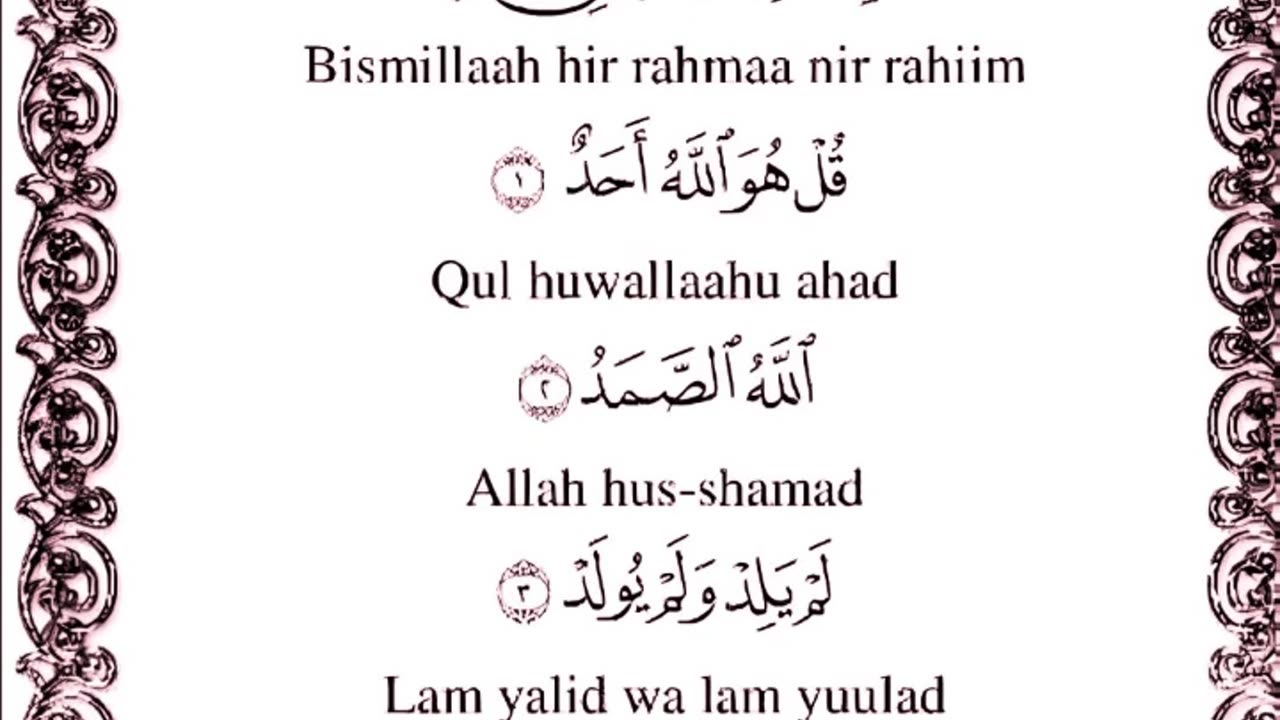 Bismillaah hir rahmaa nir rahiim
قُلْ هُوَ ٱللَّهُ أَحَدٌ ١
Qul huwallaahu ahad
ٱللَّهُ ٱلصَّمَدُ ٢
Allah hus-shamad
لَمْ يَلِدْ وَلَمْ يُولَدْ ٣
Lam yalid wa lam yuulad